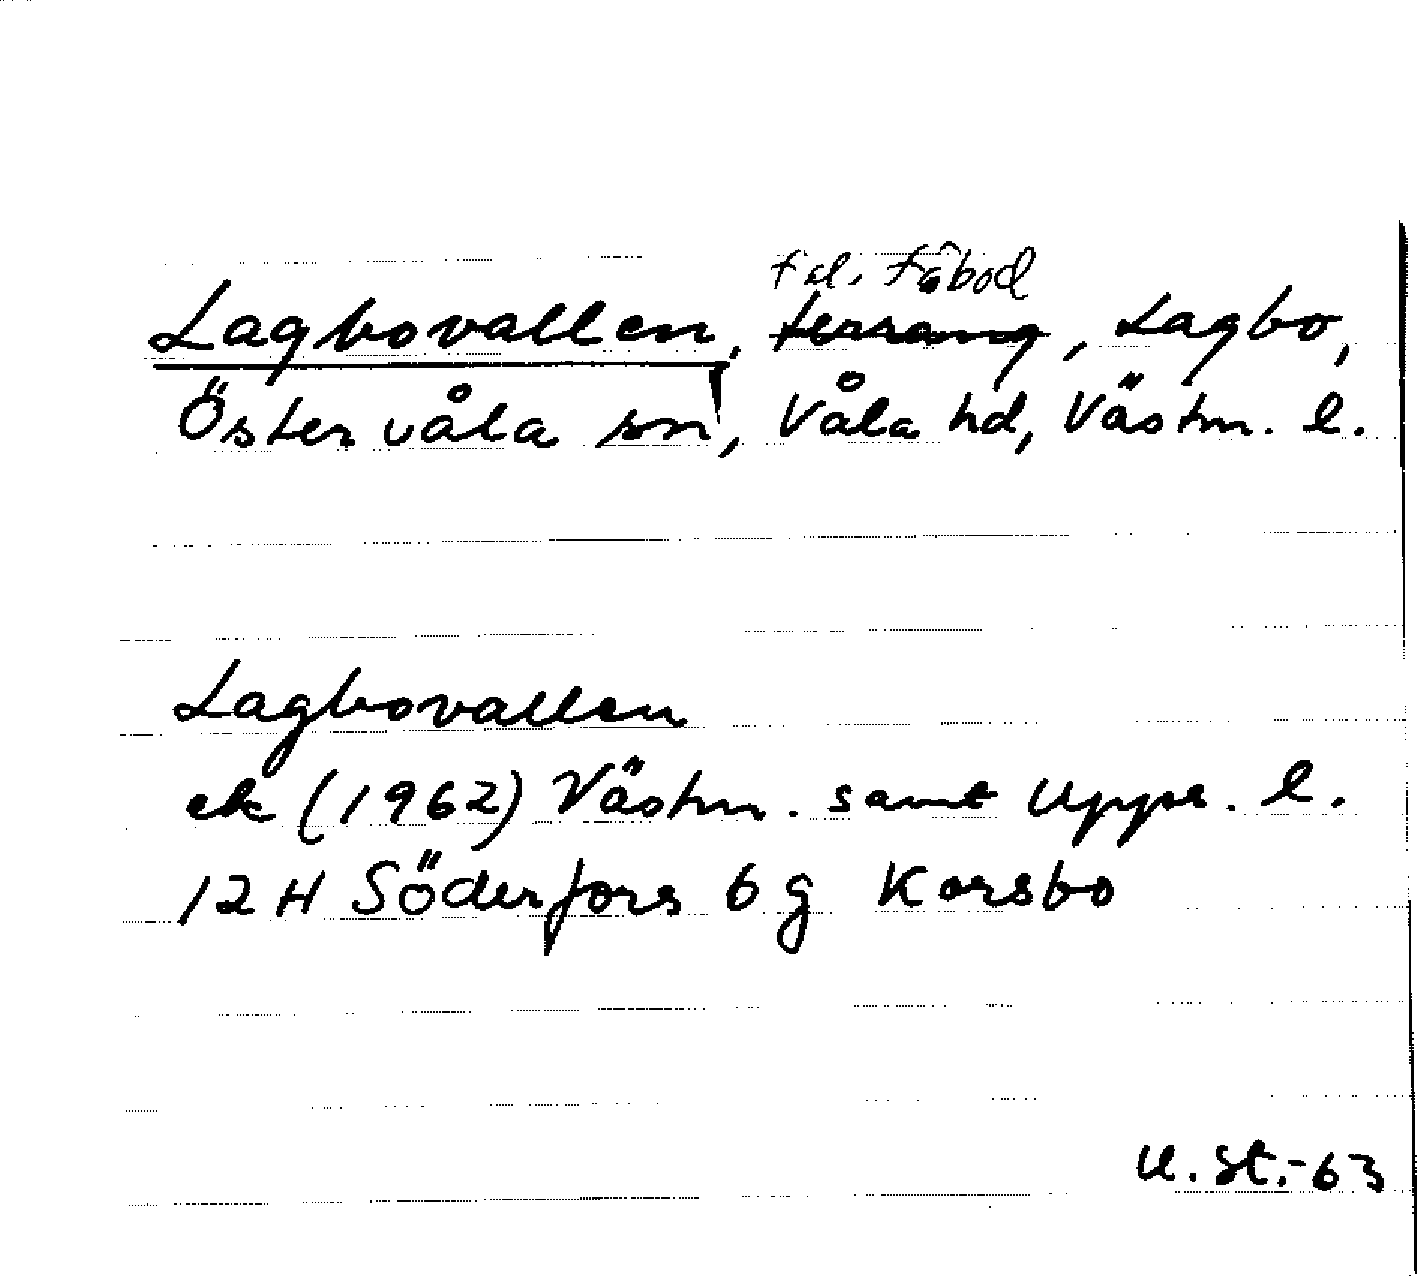 f.d. fäbod
Lagbovallen, terräng, Lagbo,
Östervåla sn, Våla hd, Västm. l.
Lagbovallen
ek (1962) Västm. samt Upps. l.
12 H Söderfors 6 g Korsbo
U. St.-63